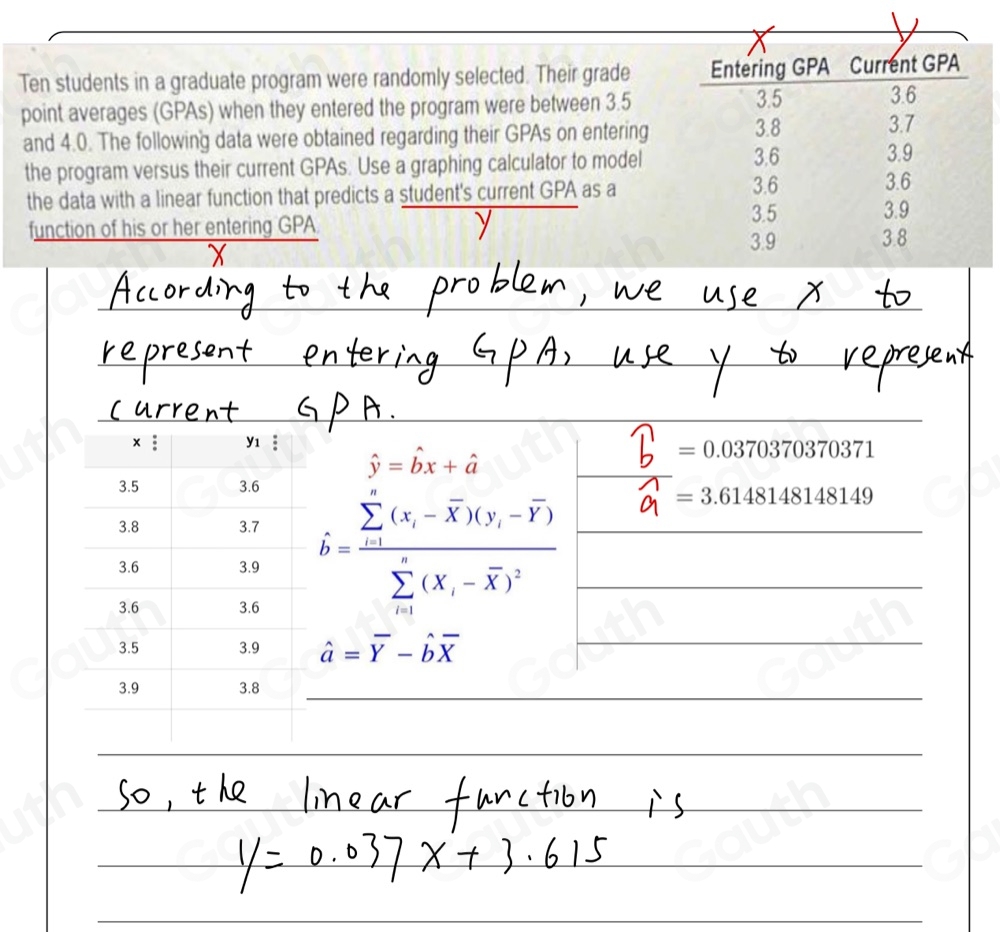 x y
Ten students in a graduate program were randomly selected. Their grade
point averages (GPAs) when they entered the program were between 3.5
and 4.0. The following data were obtained regarding their GPAs on entering
the program versus their current GPAs. Use a graphing calculator to model
the data with a linear function that predicts a student's current GPA as a
function of his or her entering GPA.
x y
Entering GPA Current GPA
3.5 3.6
3.8 3.7
3.6 3.9
3.6 3.6
3.5 3.9
3.9 3.8
According to the problem, we use x to
represent entering GPA, use y to represent
current GPA.
x y₁
3.5 3.6
3.8 3.7
3.6 3.9
3.6 3.6
3.5 3.9
3.9 3.8
ŷ = b̂x + â
b̂ = ∑ⁿᵢ₌₁ (xᵢ − X̄)(yᵢ − Ȳ) / ∑ⁿᵢ₌₁ (Xᵢ − X̄)²
â = Ȳ − b̂X̄
b̂ = 0.0370370370371
â = 3.6148148148149
So, the linear function is
y = 0.037x + 3.615
Gauth